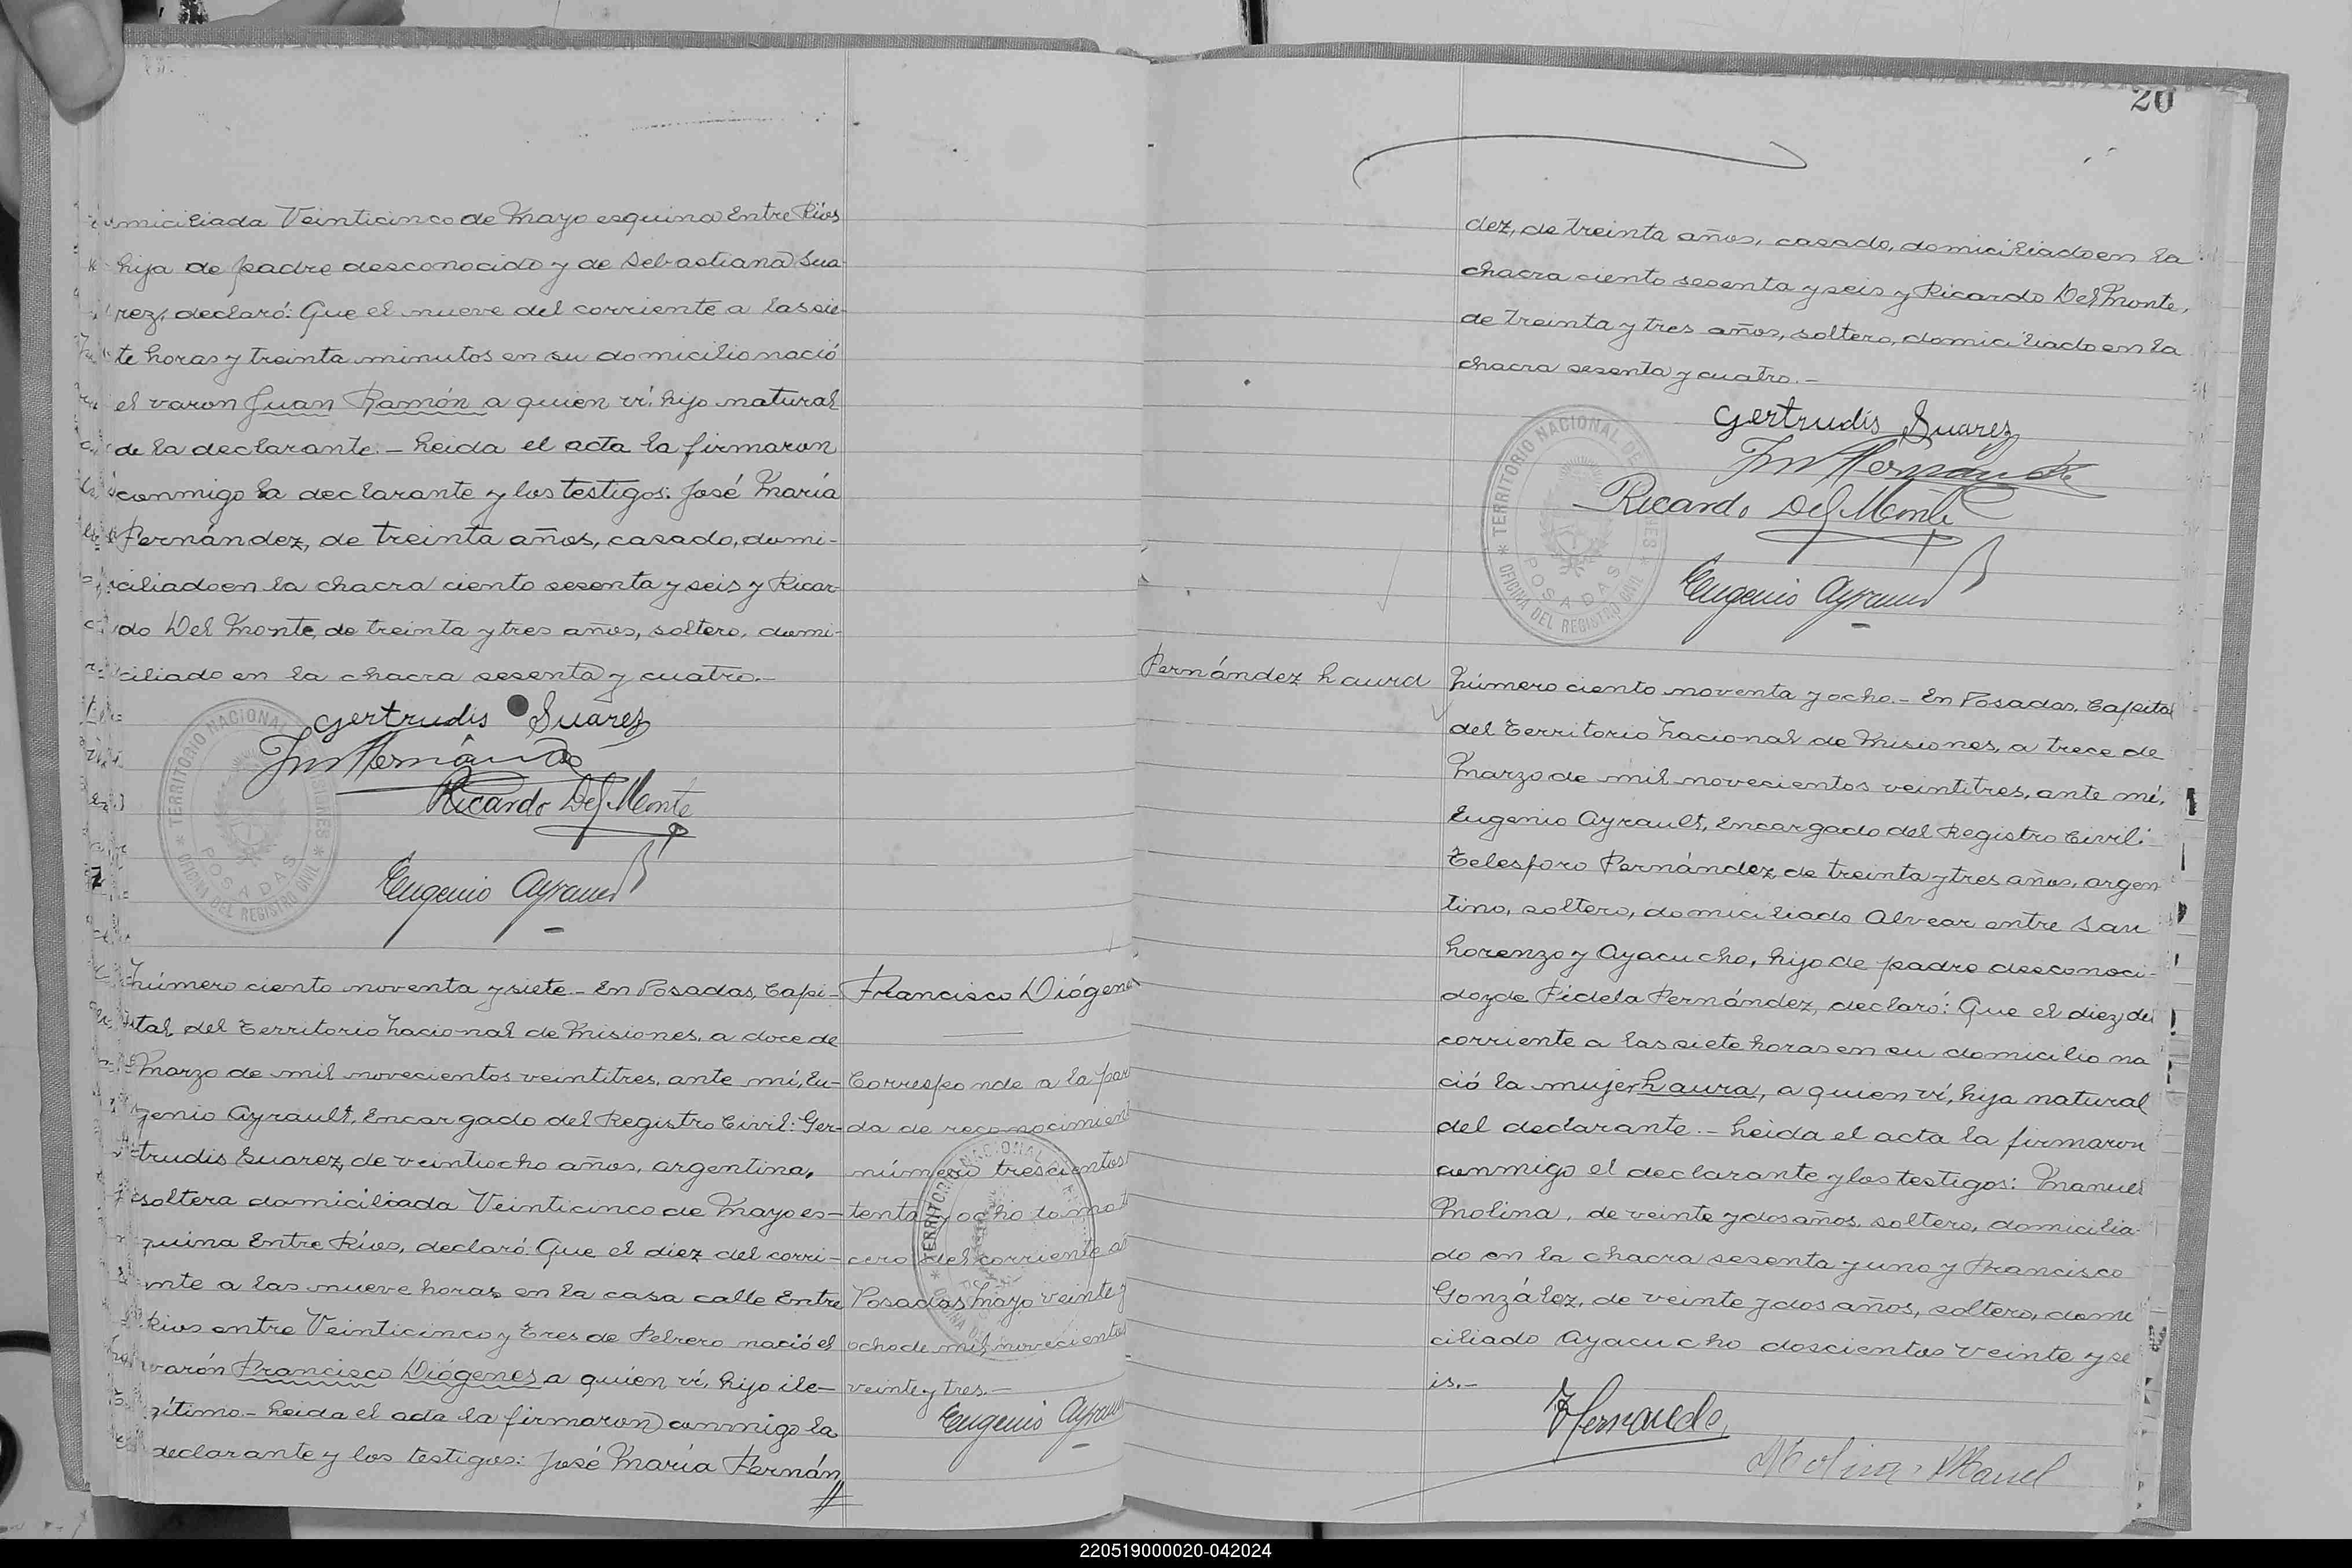 miciliada Veinticinco de Mayo esquina Entre Ríos
hija de padre desconocido y de Sebastiana Sua-
rez, declaró: Que el nueve del corriente a las sie-
te horas y treinta minutos en su domicilio nació
el varon Juan Ramón a quien ví, hijo natural
de la declarante.- Leida el acta la firmaron
conmigo la declarante y los testigos: José María
Fernández, de treinta años, casado, domi-
ciliado en la chacra ciento sesenta y seis y Ricar-
do Del Monte, de treinta y tres años, soltero, domi-
ciliado en la chacra sesenta y cuatro.-
Gertrudis Suarez
Ricardo Del Monte
Eugenio Ayrault
TERRITORIO NACIONAL DE MISIONES
POSADAS
OFICINA DEL REGISTRO CIVIL
Número ciento noventa y siete.- En Posadas, Capi-
tal del Territorio Nacional de Misiones, a doce de
Marzo de mil novecientos veintitres, ante mí, Eu-
genio Ayrault, Encargado del Registro Civil: Ger-
trudis Suarez, de veintiocho años, argentina,
soltera domiciliada Veinticinco de Mayo es-
quina Entre Ríos, declaró: Que el diez del corri-
ente a las nueve horas en la casa calle Entre
Rios entre Veinticinco y Tres de Febrero nació el
varón Francisco Diógenes a quien ví, hijo ile-
gítimo.- Leida el acta la firmaron conmigo la
declarante y los testigos: José María Fernán
Francisco Diógenes
Corresponde a la par
da de reconocimient
número trescientos
tenta y ocho tomo t
cero del corriente añ
Posadas Mayo veinte y
ocho de mil novecientos
veinte y tres.-
Eugenio Ayrault
TERRITORIO NACIONAL
20
dez, de treinta años, casado, domiciliado en la
chacra ciento sesenta y seis y Ricardo Del Monte,
de treinta y tres años, soltero, domiciliado en la
chacra sesenta y cuatro.-
Gertrudis Suarez
Ricardo Del Monte
Eugenio Ayrault
TERRITORIO NACIONAL DE MISIONES
POSADAS
OFICINA DEL REGISTRO CIVIL
Fernández Laura
Número ciento noventa y ocho.- En Posadas, Capital
del Territorio Nacional de Misiones, a trece de
Marzo de mil novecientos veintitres, ante mí,
Eugenio Ayrault, Encargado del Registro Civil:
Telesforo Fernández, de treinta y tres años, argen
tino, soltero, domiciliado Alvear entre San
Lorenzo y Ayacucho, hijo de padre desconoci-
do y de Fidela Fernández, declaró: Que el diez del
corriente a las siete horas en su domicilio na
ció la mujer Laura, a quien ví, hija natural
del declarante.- Leida el acta la firmaron
conmigo el declarante y los testigos: Manuel
Molina, de veinte y dos años, soltero, domicilia-
do en la chacra sesenta y uno y Francisco
González, de veinte y dos años, soltero, domi
ciliado Ayacucho doscientos veinte y se
is.-
Molina, Manuel
220519000020-042024